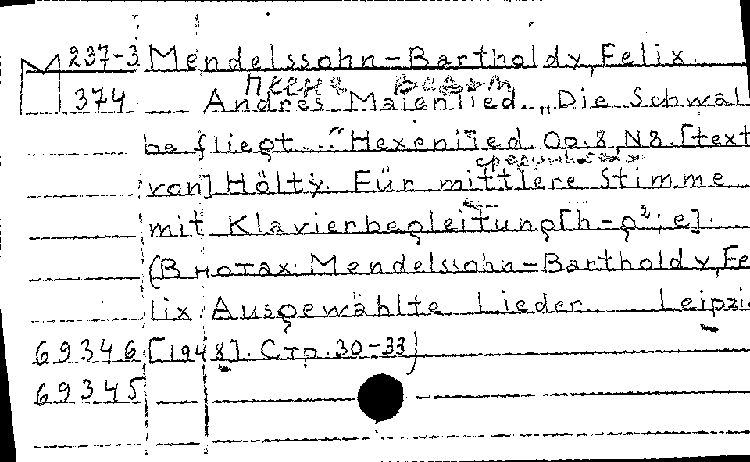 М 237-3 Mendelssohn-Bartholdy, Felix
374 Andres Maienlied. „Die Schwal
be fliegt..." Hexenlied. Op. 8, N 8. [text
von] Hölty. Für mittlere Stimme
mit Klavierbegleitung [h-g²; e].
(В нотах: Mendelssohn-Bartholdy, Fe
lix. Ausgewählte Lieder. Leipzi
69346 [1948]. Стр. 30-33)
69345